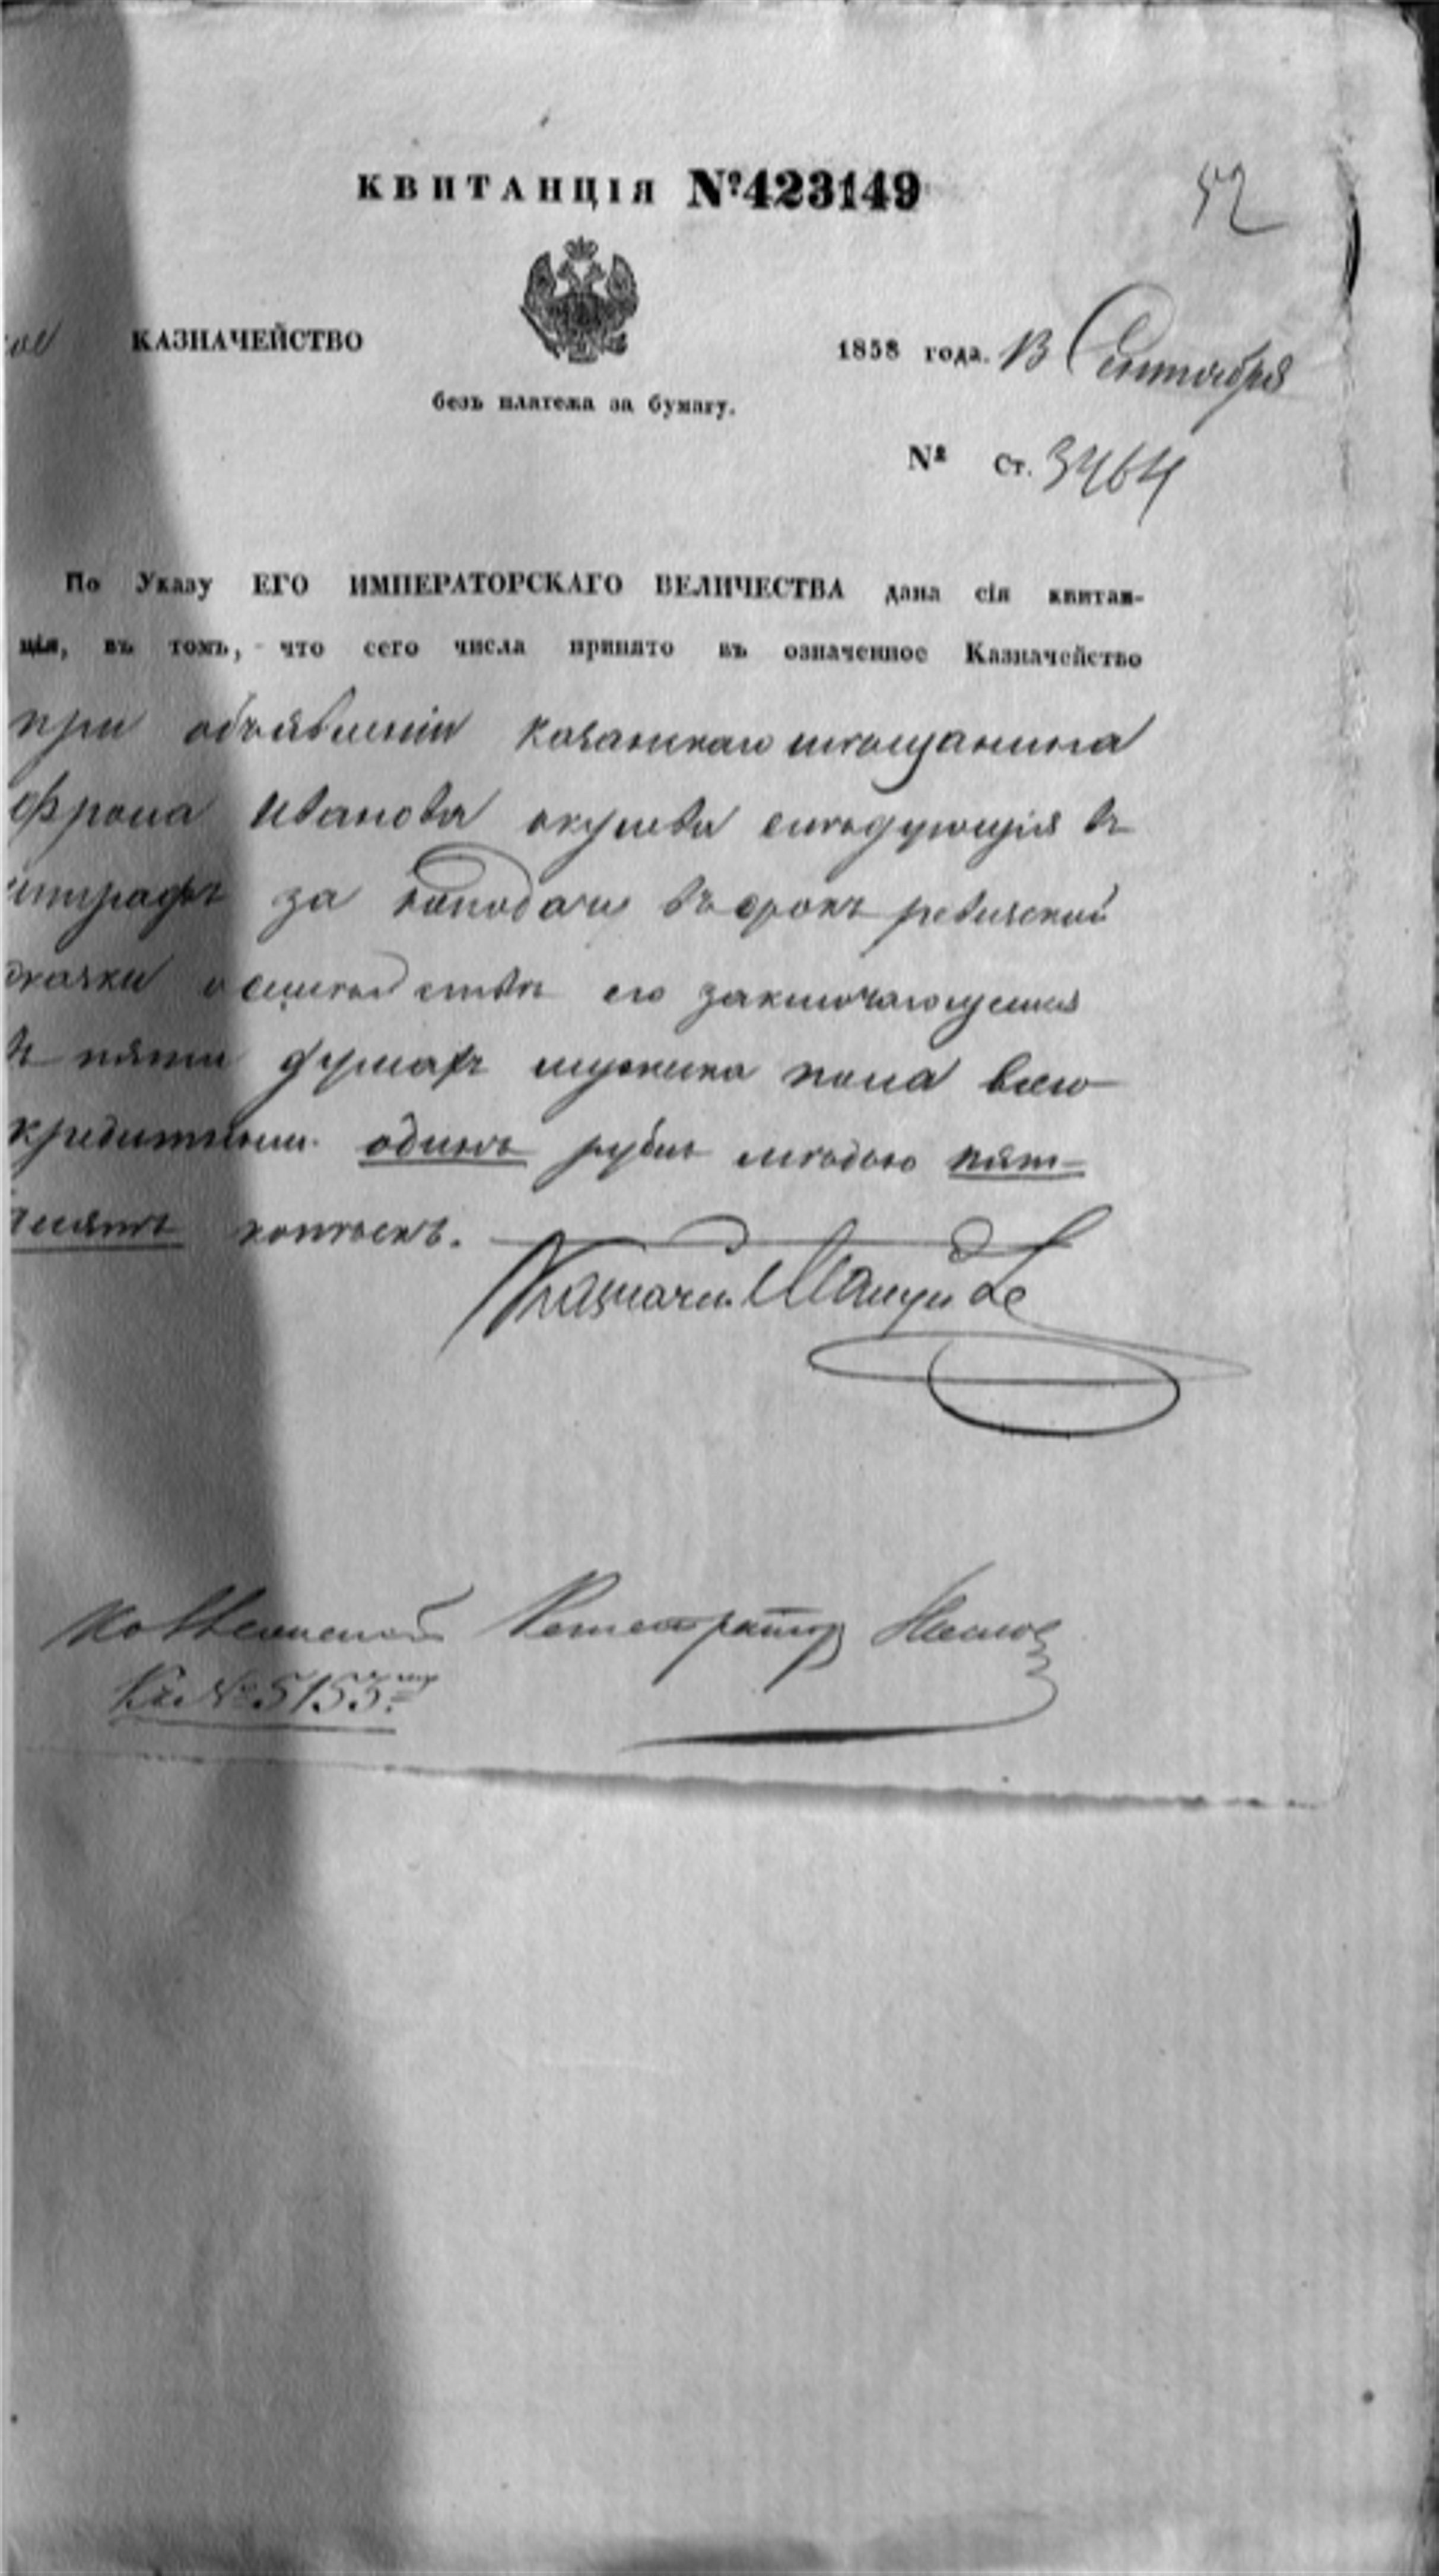 КВИТАНЦІЯ №423149
52
КАЗНАЧЕЙСТВО
1858 года. 13 Сентября
безъ платежа за бумагу.
№ ст. 3464
По Указу ЕГО ИМПЕРАТОРСКАГО ВЕЛИЧЕСТВА дана сія квитан-
ція, въ томъ, что сего числа принято въ означенное Казначейство
при объявленіи казанскаго мѣщанина
Фрола Иванова следующія въ
штрафъ за въ срокъ ревизской
сказки о семействѣ его заключающемся
въ пяти душахъ мужска пола всего
кредитными одинъ рубль мѣдью пят-
десятъ копѣекъ.
Казначей
Кн. № 5153.